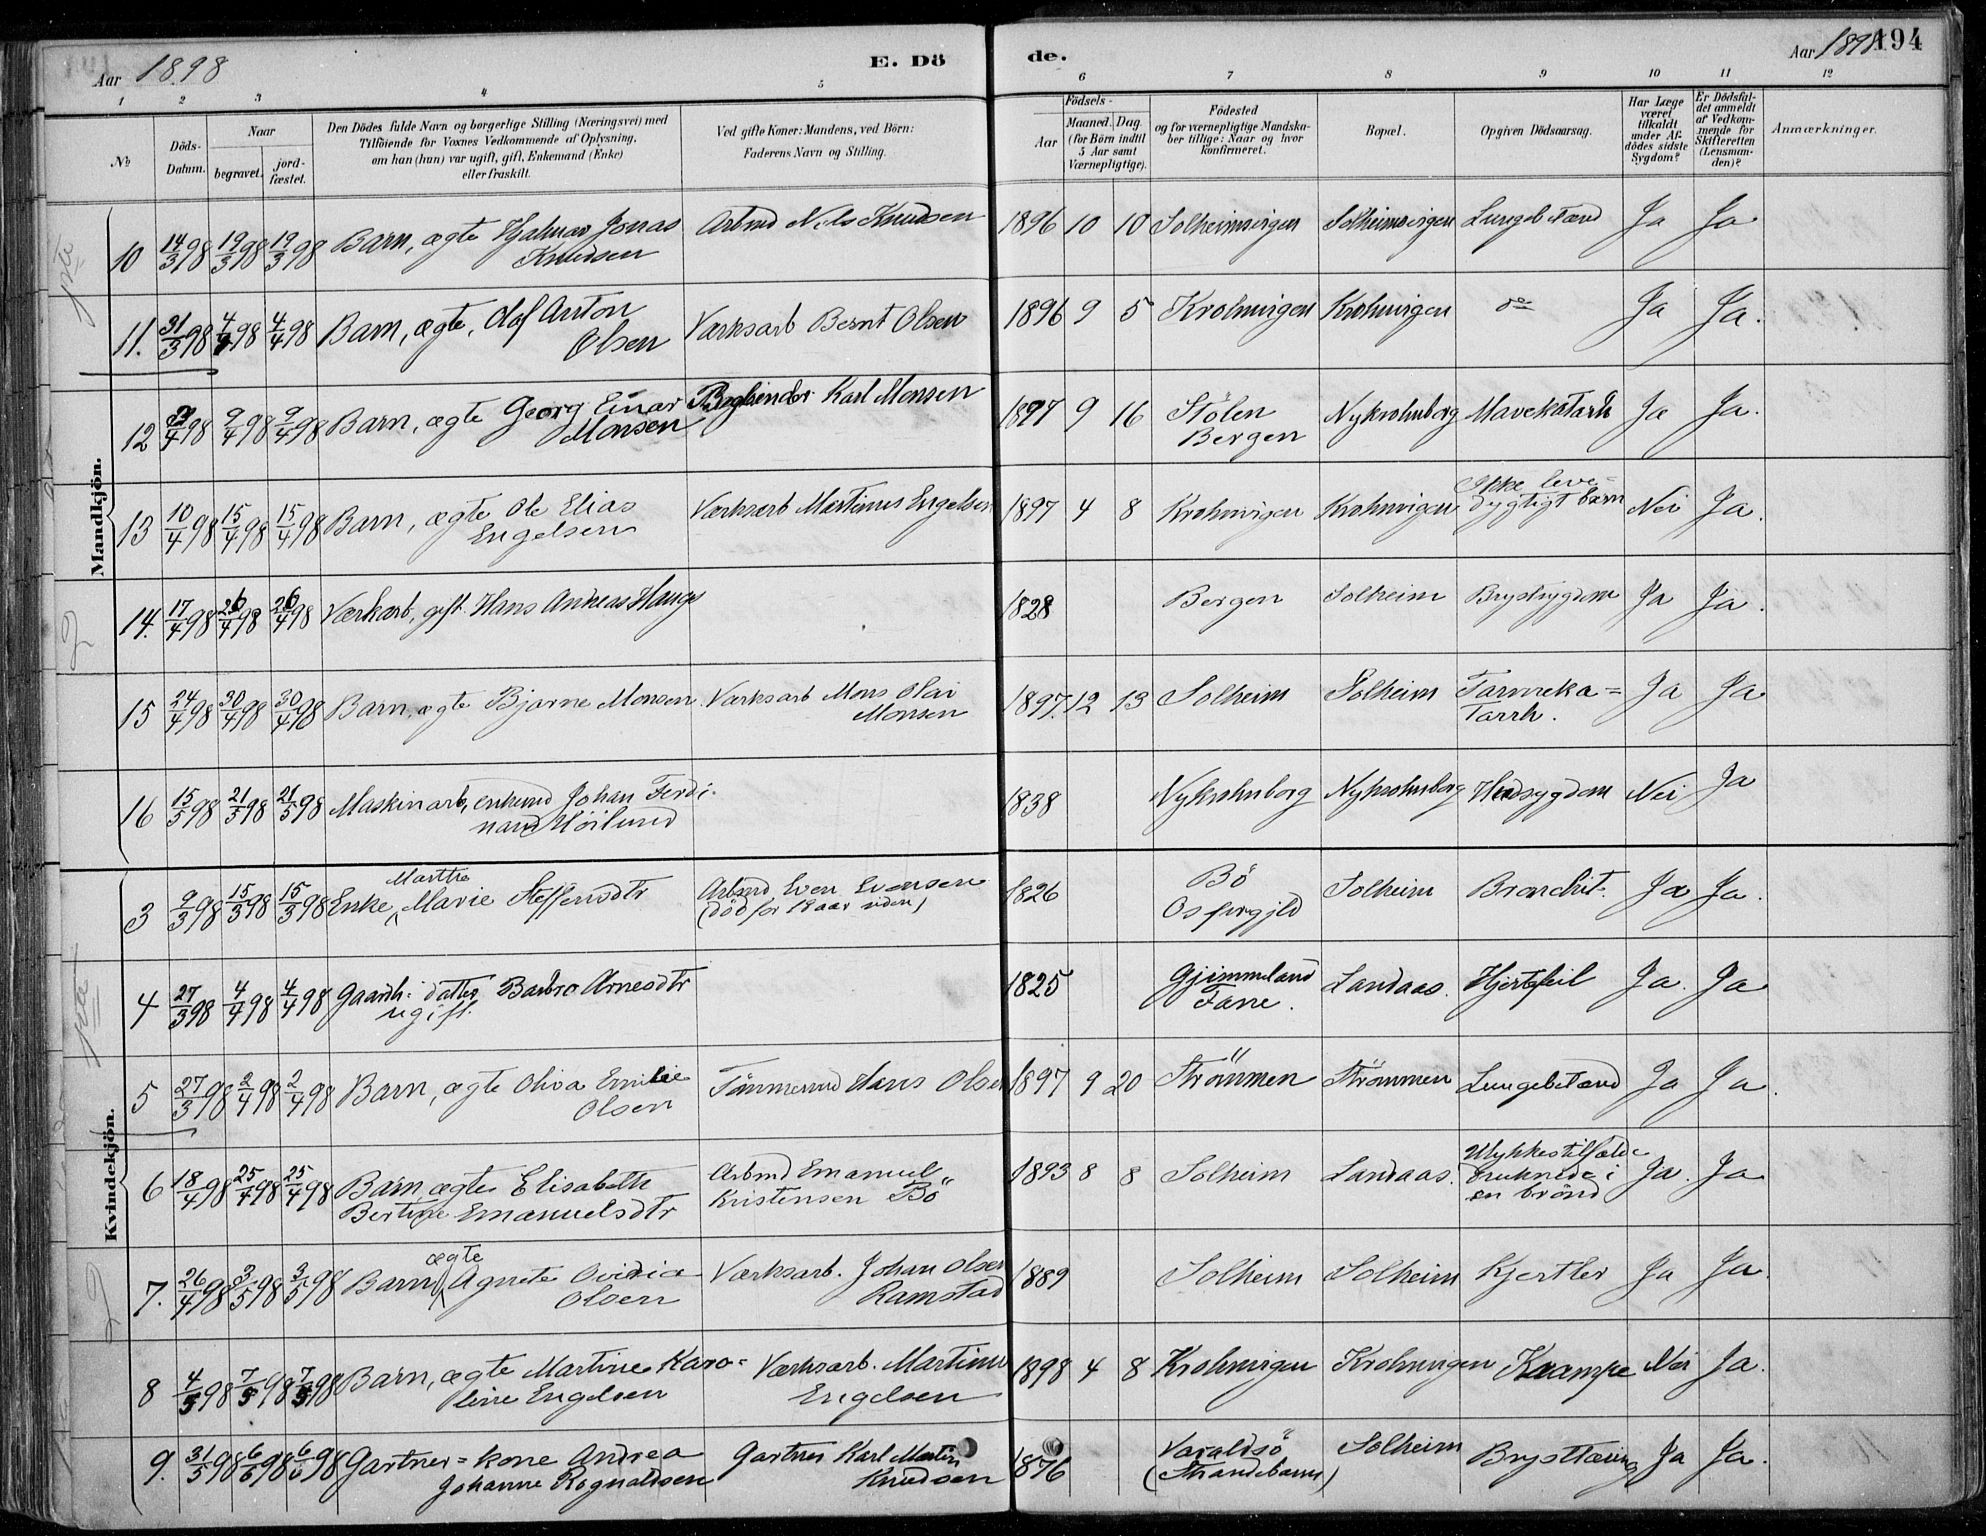 Aar 1898 E. Dö de. Aar 1898 194
1 2 3 4 5 6 7 8 9 10 11 12
No
Döds-Datum.
Naar
begravet.
jord-fæstet.
Den Dödes fulde Navn og borgerlige Stilling (Næringsvei) med
Tilföiende for Voxnes Vedkommende af Oplysning,
om han (hun) var ugift, gift, Enkemand (Enke)
eller fraskilt.
Ved gifte Koner: Mandens, ved Börn:
Faderens Navn og Stilling.
Födsels-
Aar
Maaned. Dag.
(for Börn indtil
5 Aar samt
Værnepligtige).
Födested
og for værnepligtige Mandska-
ber tillige: Naar og hvor
konfirmeret.
Bopæl.
Opgiven Dödsaarsag.
Har Læge
været
tilkaldt
under Af-
dödes sidste
Sygdom?
Er Dödsfal-
det anmeldt
af Vedkom-
mende for
Skifteretten
(Lensman-
den)?
Anmærkninger.
Mandkjön.
10 14/3 98 19/3 98 19/3 98 Barn, ægte Hjalmar Jonas Arbmd Nils Knudsen 1896 10 10 Solheimsvigen Solheimsvigen Lungebetænd Ja Ja
Knudsen
11. 31/3 98 4/4 98 4/4 98 Barn, ægte, Olaf Anton Værksarb Bernt Olsen 1896 9 5 Krohnvigen Krohnvigen do Ja Ja.
Olsen
12 /4 98 9/4 98 9/4 98 Barn, ægte Georg Einar Bogbinder Karl Monsen 1897 9 16 Stölen Nykrohnborg Mavekatarh Ja Ja.
Monsen Bergen
13 10/4 98 15/4 98 15/4 98 Barn, ægte Ole Elias Værksarb Martinus Engelsen 1897 4 8 Krohnvigen Krohnvigen Ikke leve= Nei Ja.
Engelsen dygtigt barn
14. 17/4 98 26/4 98 26/4 98 Værksarb, gift. Hans Andreas Hauge 1828 Bergen Solheim Brystsygdom Ja Ja.
15 24/4 98 30/4 98 30/4 98 Barn, ægte Bjarne Monsen. Værksarb Mons Olai 1897. 12 13 Solheim Solheim Tarmeka= Ja Ja
Monsen Tarrh.
16 15/5 98 21/5 98 21/5 98 Maskinarb, enkemd Johan Ferdi- 1838 Nykrohnborg Nykrohnborg Nei Ja
nand Höilund
Kvindekjön.
3 9/3 98 15/3 98 15/3 98 Enke, Marthe Marie Steffensdtr Arbmd Even Evensen 1826 Bö Solheim Bronchit. Ja Ja.
(död for 19 aar siden) Os prgjld
4 27/3 98 4/4 98 4/4 98 Gaardb: datter Barbro Arnesdtr 1825 Gjimmeland Landaas. Hjertefeil Ja. Ja
ugift. Fane.
5 27/3 98 2/4 98 2/4 98 Barn, ægte Oliva Emilie Tömmermd Hans Olsen 1897 9 20 Strömmen Strömmen Lungebetænd Ja Ja.
Olsen
6 18/4 98 25/4 98 25/4 98 Barn, ægte Elisabeth Arbmd Emanuel 1893 8 8 Solheim Landaas. Ulykkestilfælde Ja. Ja
Bertine Emanuelsdtr Kristensen Bö druknede i
en brönd
7. 26/4 98 3/5 98 3/5 98 Barn, ægte Agnete Ovidia Værksarb. Johan Olsen 1889 Solheim Solheim Kjertler Ja Ja.
Olsen Ramstad
8 4/5 98 7/5 98 7/5 98 Barn, ægte Martine Karo= Værksarb. Martinus 1898 4 8 Krohnvigen Krohnvigen Krampe Nei Ja.
line Engelsen Engelsen
9. 31/5 98 6/6 98 6/6 98 Gartner=kone Andrea Gartner Karl Martin 1876 Varaldsö Solheim Brysttæring Ja Ja.
Johanne Rognaldsen Knudsen (Strandebarm)